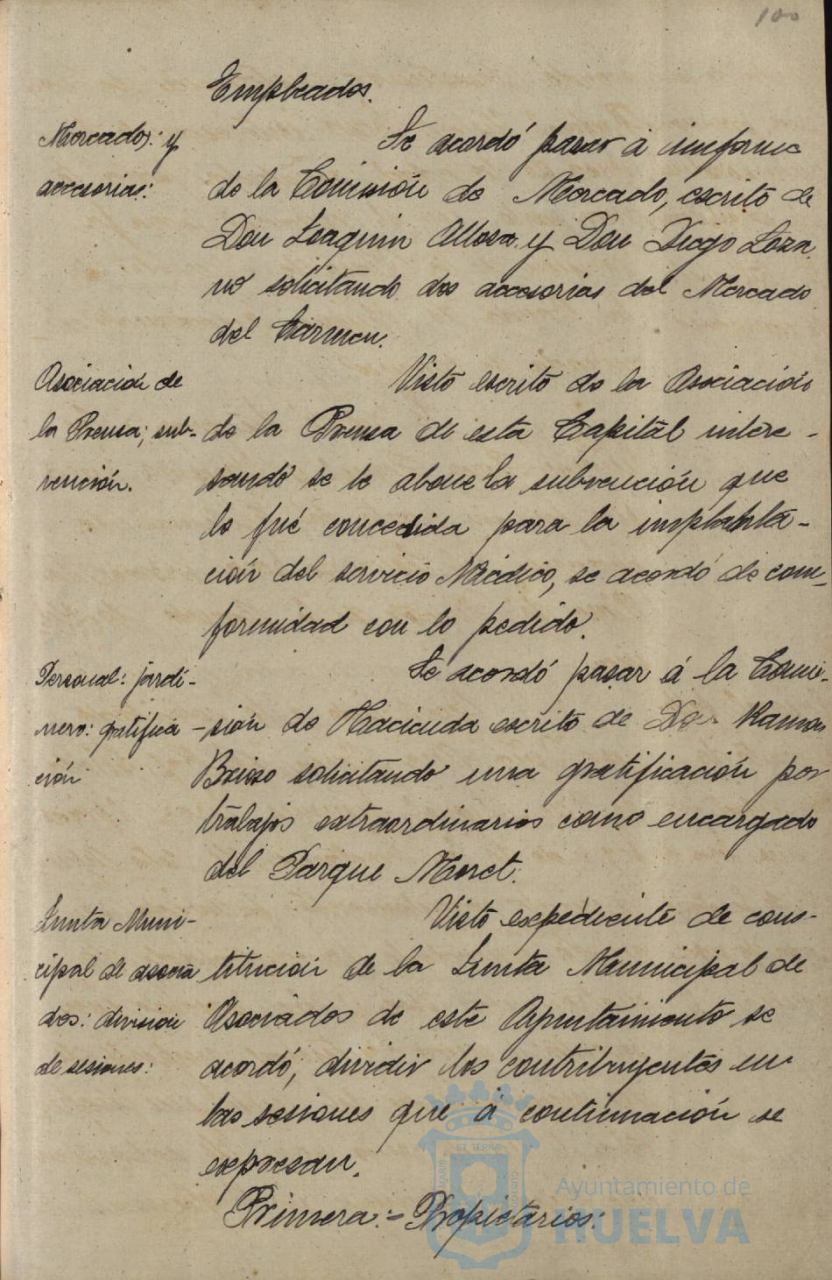 100
Empleados.
Mercados: y
accesorias:
Se acordó pasar á informe
de la Comisión de Mercado, escrito de
Don Joaquin y Don Diego Loza
no solicitando dos accesorias del Mercado
del Carmen.
Asociación de
la Prensa; sub-
vención.
Visto escrito de la Asociación
de la Prensa de esta Capital intere-
sando se le abone la subvención que
le fué concedida para la implanta-
ción del servicio Médico, se acordó de con-
formidad con lo pedido.
Personal: jardi-
nero: gratifica
ción
Se acordó pasar á la Comi-
sión de Hacienda escrito de Don Ramon
solicitando una gratificación por
trabajos extraordinarios como encargado
del Parque Moret.
Junta Muni-
cipal de asocia
dos: division
de sesiones:
Visto expediente de cons-
titución de la Junta Municipal de
Asociados de este Ayuntamiento se
acordó, dividir los contribuyentes en
las sesiones que á continuación se
expresan.
Primera:- Propietarios:
Ayuntamiento de
HUELVA